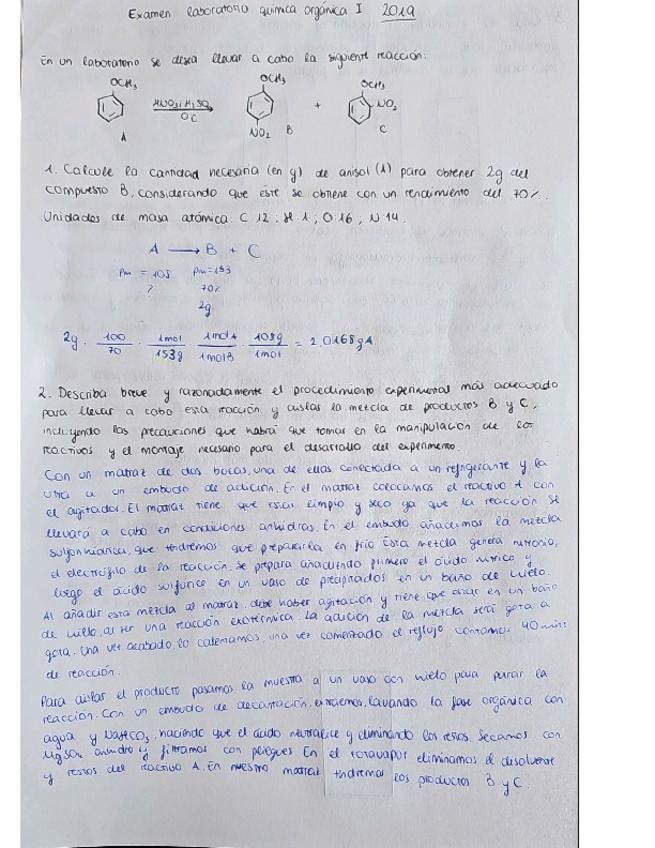 Examen laboratorio química orgánica I 2019
En un laboratorio se desea llevar a cabo la siguiente reacción:
OCH3 OCH3 OCH3
HNO3/H2SO4 + NO2
0C
A NO2 B C
1. Calcule la cantidad necesaria (en g) de anisol (A) para obtener 2g del
compuesto B, considerando que éste se obtiene con un rendimiento del 70%.
Unidades de masa atómica: C 12; H 1; O 16; N 14.
A → B + C
Pm = 108 Pm=153
? 70%
2g
2g · 100/70 · 1mol/153g · 1molA/1molB · 108g/1mol = 2,0168gA
2. Describa breve y razonadamente el procedimiento experimental más adecuado
para llevar a cabo esta reacción y aislar la mezcla de productos B y C,
incluyendo las precauciones que habrá que tomar en la manipulación de los
reactivos y el montaje necesario para el desarrollo del experimento.
Con un matraz de dos bocas, una de ellas conectada a un refrigerante y la
otra a un embudo de adición. En el matraz colocamos el reactivo A con
el agitador. El matraz tiene que estar limpio y seco ya que la reacción se
llevará a cabo en condiciones anhidras. En el embudo añadimos la mezcla
que tendremos que prepararla en frío. Esta mezcla genera nitronio,
el electrófilo de la reacción. Se prepara añadiendo primero el ácido nítrico y
luego el ácido sulfúrico en un vaso de precipitados en un baño de hielo.
Al añadir esta mezcla al matraz, debe haber agitación y tiene que estar en un baño
de hielo, al ser una reacción exotérmica. La adición de la mezcla será gota a
gota. Una vez acabado, lo calentamos, una vez comenzado el reflujo contamos 40 mins
de reacción.
Para aislar el producto pasamos la muestra a un vaso con hielo para parar la
reacción. Con un embudo de decantación, extraemos, lavando la fase orgánica con
agua y NaHCO3, haciendo que el ácido neutralice y eliminando los restos. Secamos con
MgSO4 anhidro y filtramos con pliegues. En el rotavapor eliminamos el disolvente
y restos del reactivo A. En nuestro matraz tendremos los productos B y C.